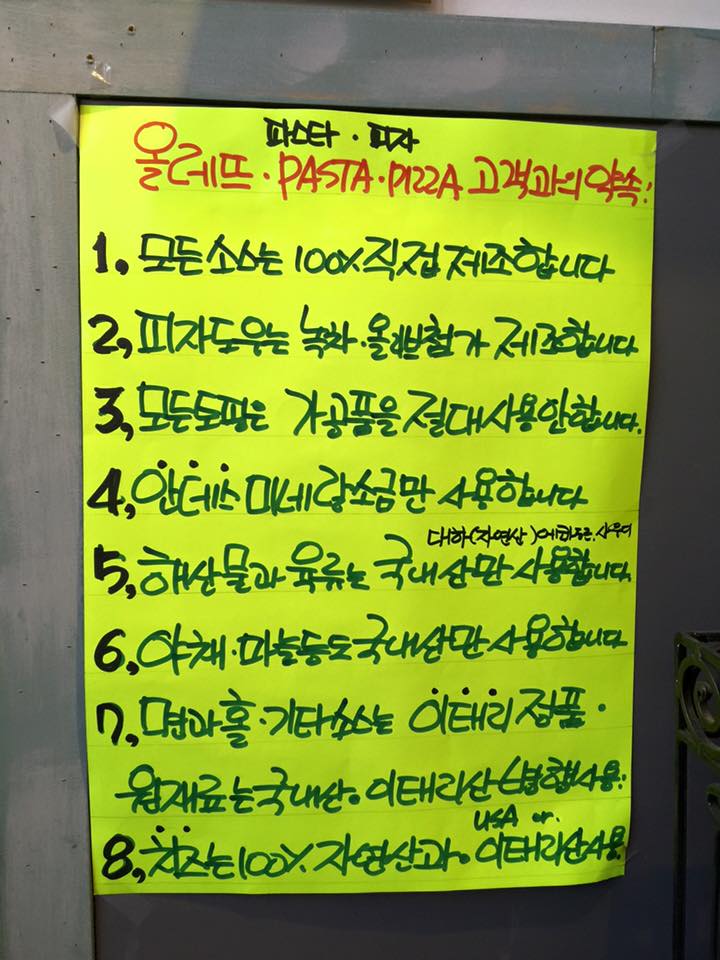 파스타 · 피자
올레뜨 · PASTA · PIZZA 고객과의 약속!
1, 모든소스는 100% 직접 제조합니다
2, 피자도우는 녹차·올리브첨가 제조합니다
3, 모든토핑은 가공품을 절대사용안합니다.
4, 안데스 미네랑소금만 사용합니다
대하(자연산)
5, 해산물과 육류는 국내산만 사용합니다.
6, 야채·마늘등도 국내산만 사용합니다
7, 면과 홀·기타소스는 이태리 정품.
원재료는국내산. 이태리산 병행사용!
USA or.
8, 치즈는100% 자연산과. 이태리산사용